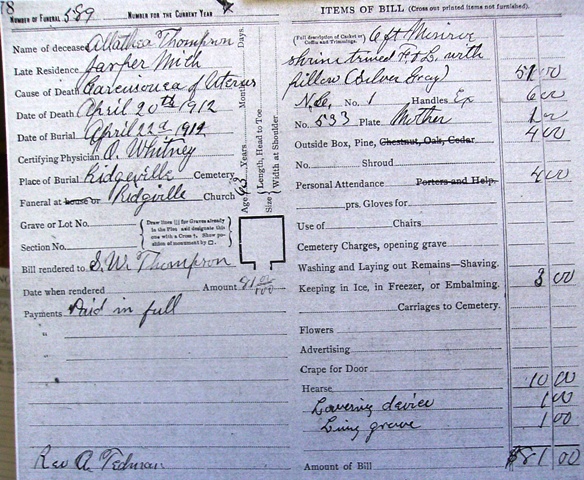 78
NUMBER OF FUNERAL 589 NUMBER FOR THE CURRENT YEAR
Name of deceased Allathea Thompson
Late Residence Jasper Mich
Cause of Death Carcinoma of Uterus
Date of Death April 20th 1912
Date of Burial April 22d 1912
Certifying Physician O. Whitney
Place of Burial Ridgeville Cemetery
Funeral at house or Ridgville Church
Age Years Months Days.
Size Length, Head to Toe.
Width at Shoulder
Grave or Lot No.
Section No.
Draw lines for Graves already
in the Plot and designate this
one with a Cross †. Show po-
sition of monument by □.
Bill rendered to S. W. Thompson
Date when rendered Amount 81 00/100
Payments Paid in full
Rev A. Tedman
ITEMS OF BILL (Cross out printed items not furnished).
(Full description of Casket or
Coffin and Trimmings. 6 ft Monroe
shrine trimed F & L. with
pillow (Silver Gray) 51 00
No. 1 Handles Ex 6 00
No. 533 Plate Mother 1 00
Outside Box, Pine, Chestnut, Oak, Cedar. 4 00
No. Shroud
Personal Attendance Porters and Help. 4 00
prs. Gloves for
Use of Chairs
Cemetery Charges, opening grave
Washing and Laying out Remains—Shaving.
Keeping in Ice, in Freezer, or Embalming. 3 00
Carriages to Cemetery.
Flowers
Advertising
Crape for Door
Hearse 10 00
Lowering device 1 00
Lining grave 1 00
Amount of Bill $81 00